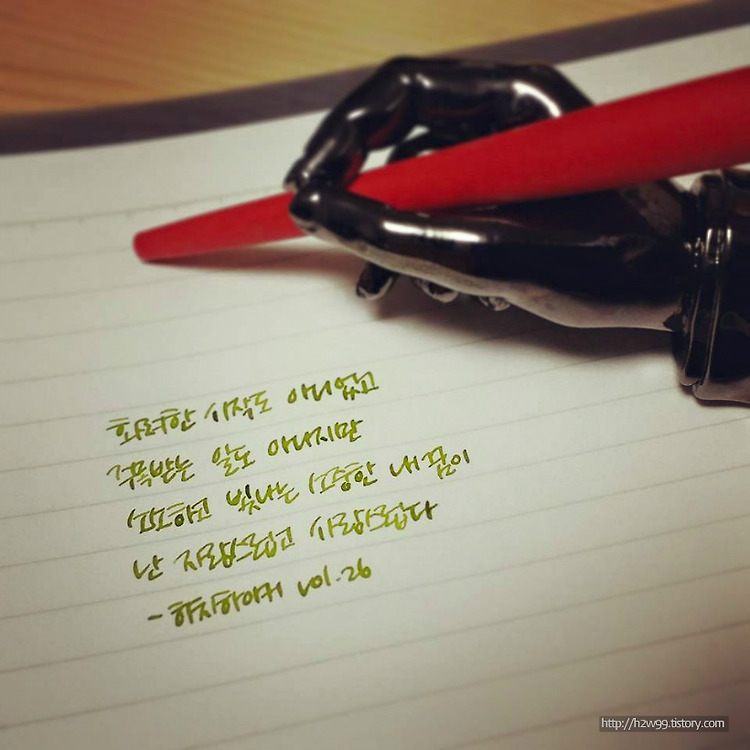 화려한 시작도 아니었고
주목받는 일도 아니지만
소소하고 빛나는 소중한 내 꿈이
난 자랑스럽고 사랑스럽다
vol.26
http://hzw99.tistory.com